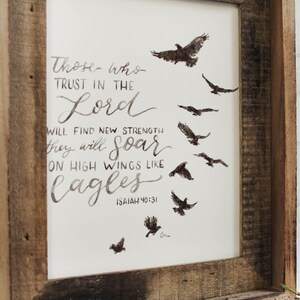 Those who
TRUST IN THE
Lord
WILL FIND NEW STRENGTH
they will Soar
ON HIGH WINGS LIKE
Eagles
ISAIAH 40:31